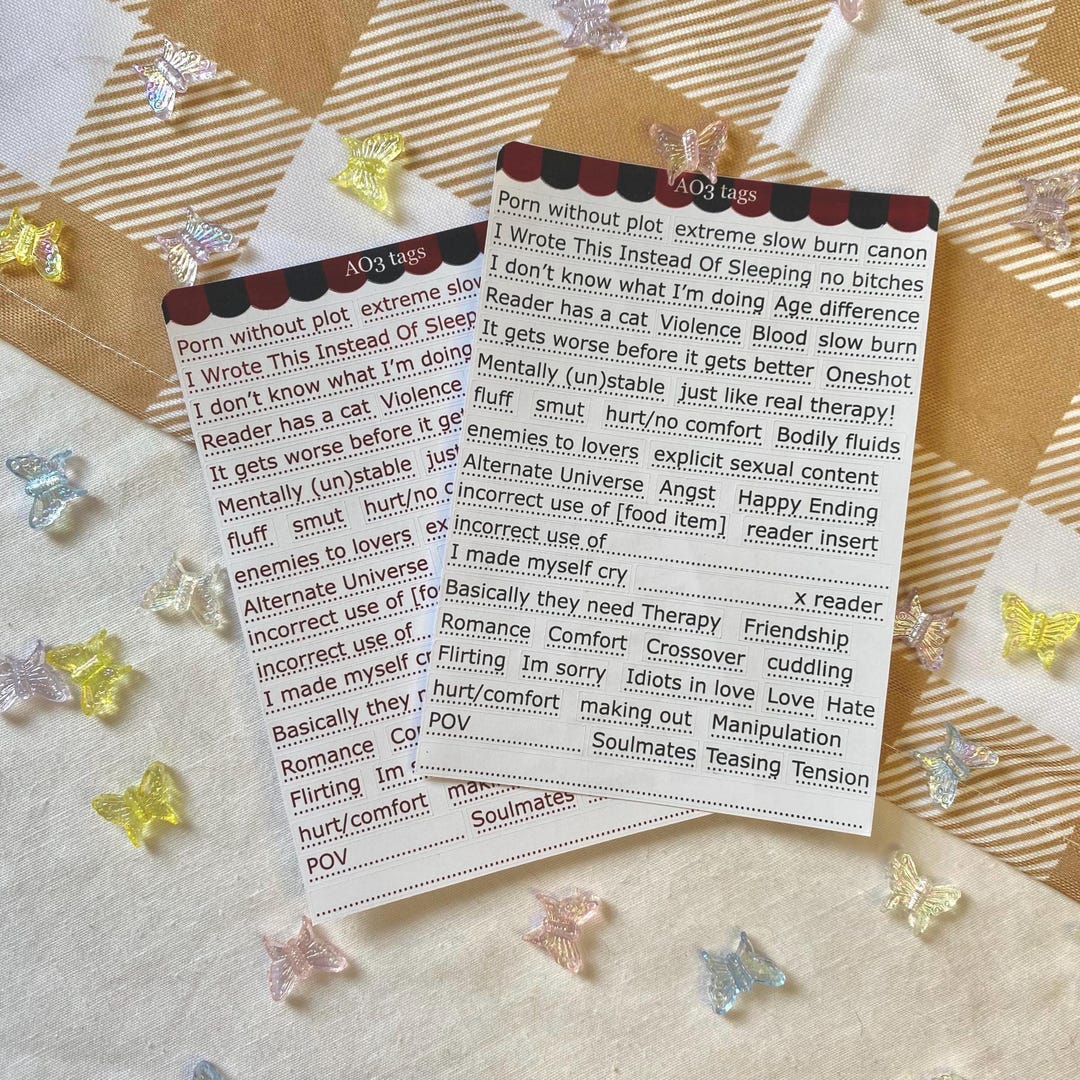 AO3 tags
Porn without plot extreme slow
I Wrote This Instead Of Sleep
I don't know what I'm doing
Reader has a cat Violence
It gets worse before it ge
Mentally (un)stable jus
fluff smut hurt/no c
enemies to lovers ex
Alternate Universe
incorrect use of [fo
incorrect use of
I made myself cr
Basically they n
Romance Co
Flirting Im
hurt/comfort mak
POV.................... Soulmates
AO3 tags
Porn without plot extreme slow burn canon
I Wrote This Instead Of Sleeping no bitches
I don't know what I'm doing Age difference
Reader has a cat Violence Blood slow burn
It gets worse before it gets better Oneshot
Mentally (un)stable just like real therapy!
fluff smut hurt/no comfort Bodily fluids
enemies to lovers explicit sexual content
Alternate Universe Angst Happy Ending
incorrect use of [food item] reader insert
incorrect use of....................
I made myself cry ....................x reader
Basically they need Therapy Friendship
Romance Comfort Crossover cuddling
Flirting Im sorry Idiots in love Love Hate
hurt/comfort making out Manipulation
POV.................... Soulmates Teasing Tension